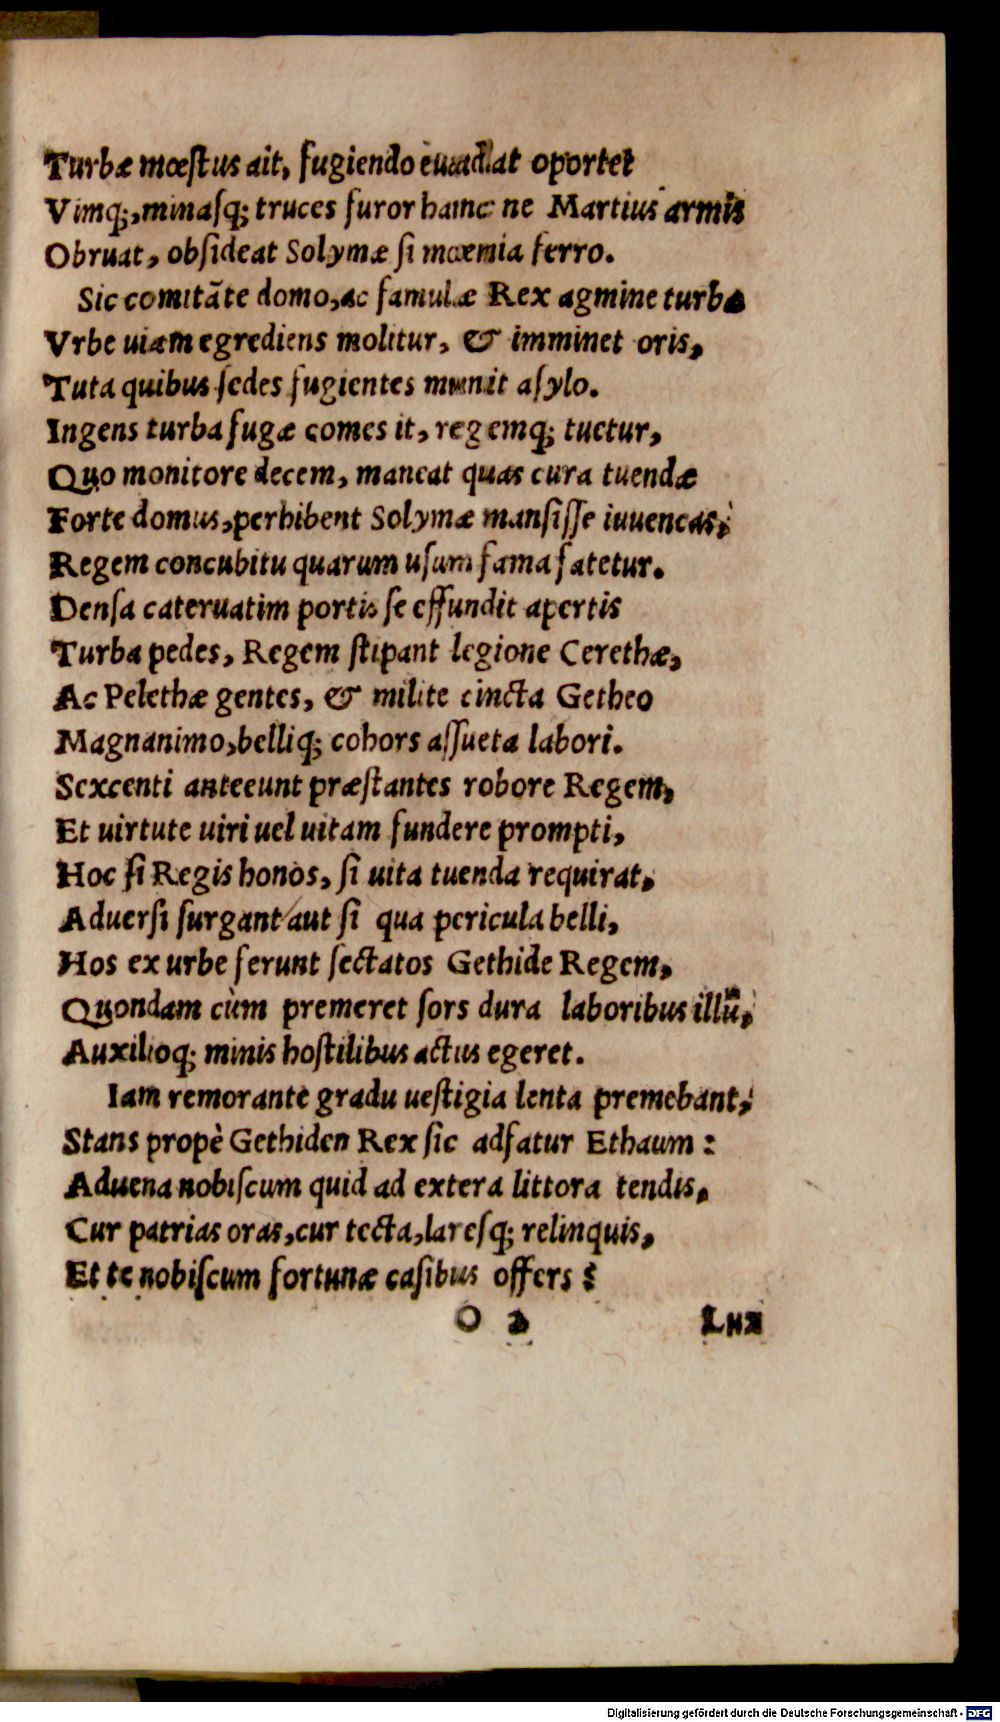 Turbæ mœstus ait, fugiendo euadat oportet
Vimq;, minasq; truces furor hanc ne Martius armis
Obruat, obsideat Solymæ si mœnia ferro.
Sic comitāte domo, ac famulæ Rex agmine turbæ
Vrbe uiam egrediens molitur, & imminet oris,
Tuta quibus sedes fugientes munit asylo.
Ingens turba fugæ comes it, regemq; tuetur,
Quo monitore decem, maneat quas cura tuendæ
Forte domus, perhibent Solymæ mansisse iuuencas,
Regem concubitu quarum usum fama fatetur.
Densa cateruatim portis se effundit apertis
Turba pedes, Regem stipant legione Cerethæ,
Ac Pelethæ gentes, & milite cincta Getheo
Magnanimo, belliq; cohors assueta labori.
Sexcenti anteeunt præstantes robore Regem,
Et uirtute uiri uel uitam fundere prompti,
Hoc si Regis honos, si uita tuenda requirat,
Aduersi surgant aut si qua pericula belli,
Hos ex urbe ferunt sectatos Gethide Regem,
Quondam cùm premeret sors dura laboribus illū,
Auxilioq; minis hostilibus actus egeret.
Iam remorante gradu uestigia lenta premebant,
Stans propè Gethiden Rex sic adfatur Ethaum:
Aduena nobiscum quid ad extera littora tendis,
Cur patrias oras, cur tecta, laresq; relinquis,
Et te nobiscum fortunæ casibus offers?
O 2 Lux
Digitalisierung gefördert durch die Deutsche Forschungsgemeinschaft - DFG